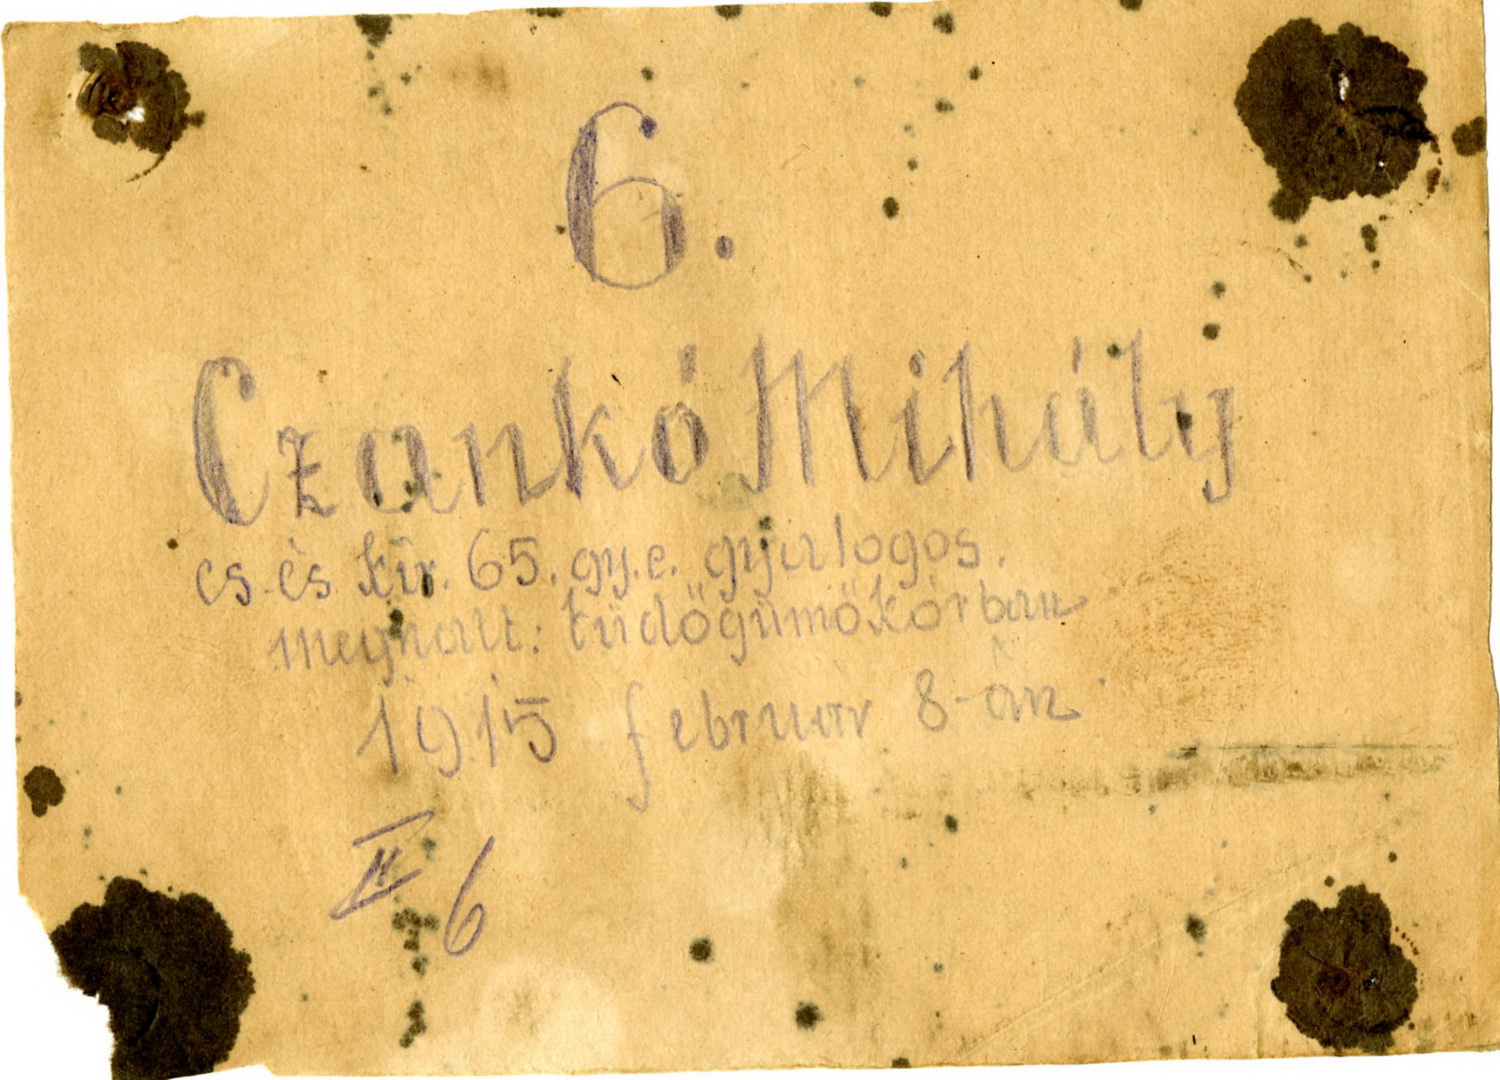 6.
Czankó Mihály
cs. és kir. 65. gy. e. gyalogos.
meghalt: tüdőgümőkórban
1915 február 8-án
II 6